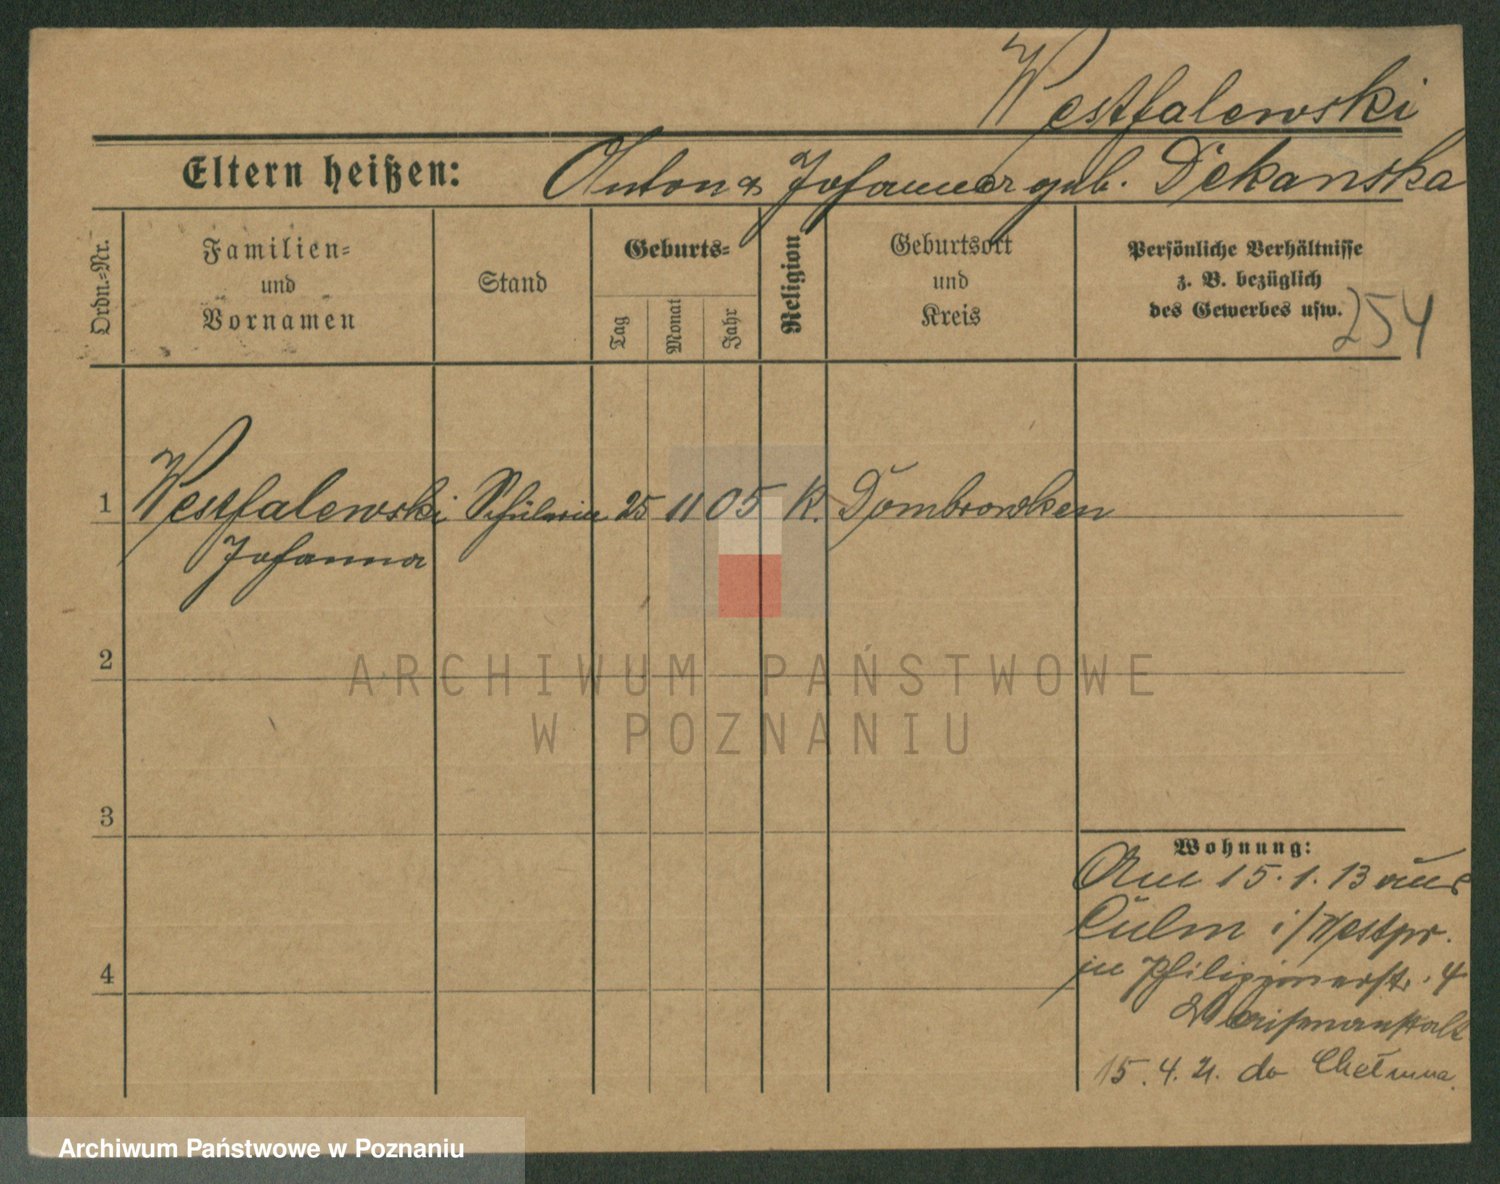 Westfalewski
Eltern heißen: Anton & Johanna geb. Dekanska
Ordn.=Nr.
Familien=
und
Vornamen
Stand
Geburts=
Tag
Monat
Jahr
Religion
Geburtsort
und
Kreis
Persönliche Verhältnisse
z. B. bezüglich
des Gewerbes usw.
254
1 Westfalewski Schülerin 25 11 05 K. Dombrowken
Johanna
2
3
4
Wohnung:
Am 15.1.13 aus
Culm i/Westpr.
in Philippinerstr. 4
Waisenanstalt
15.4.21. do Chełmna.
ARCHIWUM PAŃSTWOWE
W POZNANIU
Archiwum Państwowe w Poznaniu